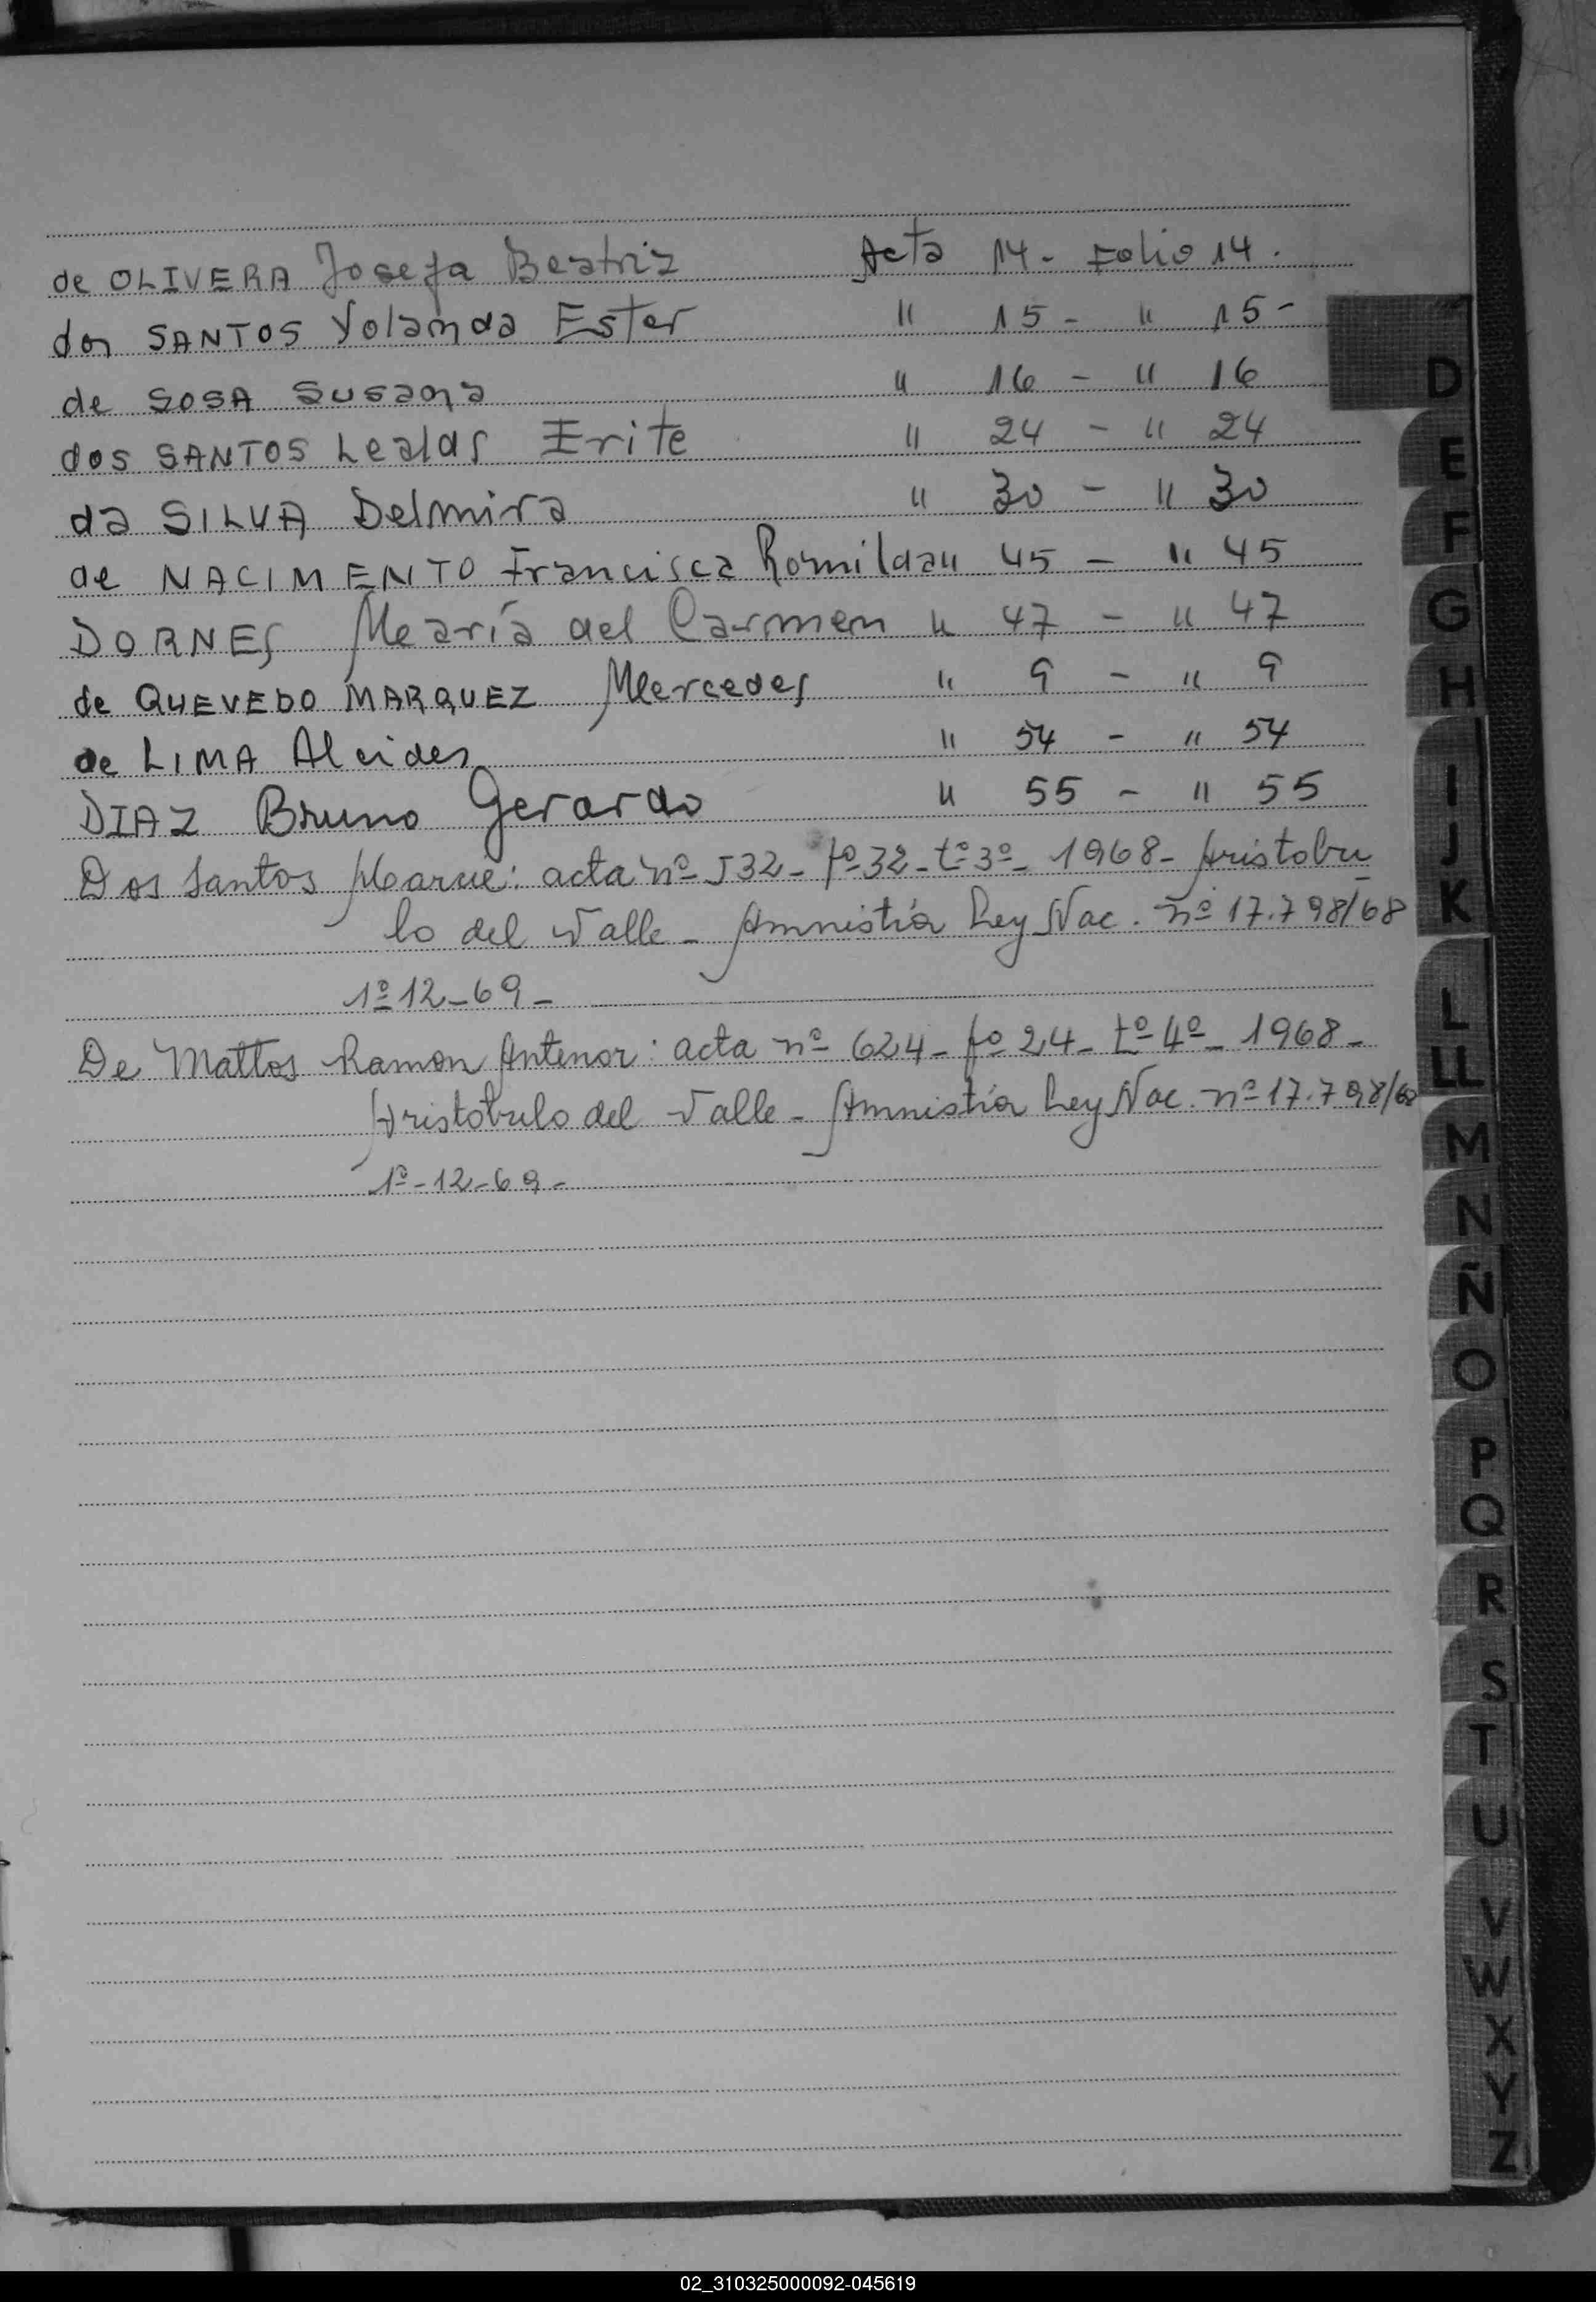 de OLIVERA Josefa Beatriz Acta 14 - Folio 14.
dos SANTOS Yolanda Ester " 15 - " 15 -
de SOSA Susana " 16 - " 16
dos SANTOS Lealdas Erite " 24 - " 24
da SILVA Delmira " 30 - " 30
de NACIMENTO Francisca Romilda " 45 - " 45
DORNES María del Carmen " 47 - " 47
de QUEVEDO MARQUEZ Mercedes " 9 - " 9
de LIMA Alcides " 54 - " 54
DIAZ Bruno Gerardo " 55 - " 55
Dos Santos : acta nº 532 - fº 32 - tº 3º - 1968 - Aristobu
lo del Valle - Amnistía Ley Nac. nº 17.798/68
1º 12 - 69 -
De Mattos Ramon Antenor: acta nº 624 - fº 24 - tº 4º - 1968 -
Aristóbulo del Valle - Amnistía Ley Nac. nº 17.798/68
1º - 12 - 69 -
D
E
F
G
H
I
J
K
L
LL
M
N
Ñ
O
P
Q
R
S
T
U
V
W
X
Y
Z
02_310325000092-045619